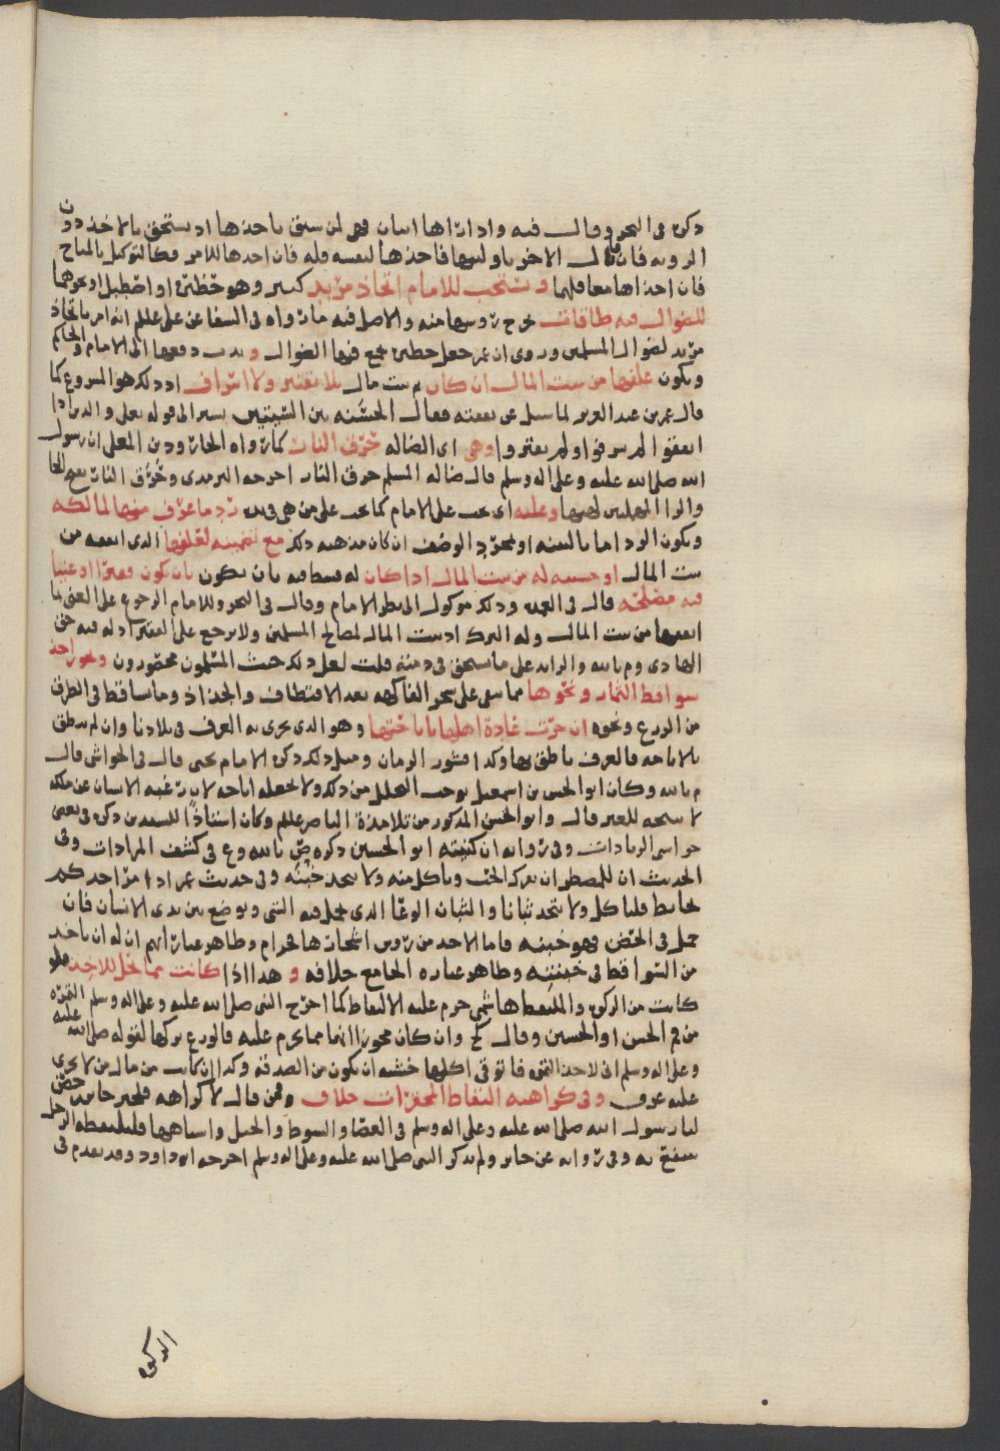 ذكره في البحر وقال فيه واذا رآها اثنان فهي لمن سبق باخذها اذ يستحق بالاخذ دون
الرويه فان قال الاخر ناولنيها فاخذها لنفسه فله فان اخذها للآمر فكالتوكيل بالمباح
فان اخذاها معا فلهما ويستحب للامام اتخاذ مربد كبير وهو حظيره او اصطبل او نحوهما
للضوال فيه طاقات تخرج رؤسها منه والاصل فيه ما رواه في الشفا عن علي عللم انه امر باتخاذ
مربد لضوال المسلمين وروي ان عمر جعل حظيره تجمع فيها الضوال و دفعها الى الامام والحاكم
ويكون علفها من بيت المال ان كان ثم بيت مال بلا تقتير ولا اسراف اذ ذلك هو المشروع كما
قال عمر بن عبد العزيز لما سئل عن نفقته فقال الحسنه بين السيئتين يشير الى قوله تعلى والذين اذا
انفقوا لم يسرفوا ولم يقتروا وهي اي الضاله حرق النار كما رواه الجارود بن المعلى ان رسول
الله صلى الله عليه وعلى اله وسلم قال ضاله المسلم حرق النار اخرجه الترمذي وحرق النار بفتح الحا
والرا المهملتين لهبها وعليه اي يجب على الامام كما يجب على من هي في يده رد ما عرف منها لمالكه
ويكون الرد اما بالبينه او بمجرد الوصف ان كان مذهبه ذلك مع تضمينه لعلفها الذي انفقه من
بيت المال او حسبه له من بيت المال اذا كان له قسط فيه بان يكون بان يكون فقيرا او غنيا
فيه مصلحه قال في البحر وذلك موكول الى نظر الامام وقال في البحر وللامام الرجوع على الغني بما
انفقها من بيت المال وله الترك اذ بيت المال لمصالح المسلمين ولا يرجع على الفقير اذ له فيه حق
الهادي وم بالله والزايد على ما يستحق في ذمته قلت لعل ذلك حيث المسلمون محصورون ويجوز اخذ
سواقط الثمار ونحوها مما بقي على شجر الفاكهه بعد الاقتطاف والجذاذ وما تساقط في الطرق
من الزرع ونحوه ان جرت عادة اهلها باباحتها وهو الذي يجري به العرف في بلادنا وان لم ينطق
بالاباحه فالعرف ناطق بها وكذا قشور الرمان ومثل ذلك ذكره الامام يحيى قال في الحواشي قال
م بالله وكان ابو الحسن بن اسمعيل يوجب من ذلك ولا يجعله اباحه لان رغبه الانسان عن ملكه
لا يبيحه للغير قال وابو الحسن المذكور من تلامذة الناصر عللم وكان استاذا للسيدين ذكره في بعض
حواشي الزيادات وفي روايه ان كنيته ابو الحسين ذكره ص بالله وع في كشف المرادات وفي
الحديث ان للمضطر ان يحرك الجب وياكل منه ولا يتخذ خبنه وفي حديث عمر اذا مر احدكم
بحايط فلياكل ولا يتخذ ثبانا والثبان الوعا الذي يحمل فيه الشي ويوضع بين يدي الانسان فان
حمل في الحضن فهو خبنه فاما الاخذ من رؤس اشجارها فحرام وظاهر عبارتهم ان له ان ياخذ
من السواقط في خبنته وظاهر عباره الجامع خلافه و هذا اذا كانت مما تحل للاخذ فلو
كانت من الزكوه والملتقط هاشمي حرم عليه الالتقاط كما اخرج النبي صلى الله عليه وعلى اله وسلم التمره
من فم الحسن او الحسين وقال كخ وان كان مجوزا انها مما يحرم عليه فالورع تركها لقوله صلى الله عليه
وعلى اله وسلم اني لاجد التمره فاتوقى اكلها خشيه ان تكون من الصدقه وكذا ان كانت من مال من لا يجري
عليه عرف وفي كراهيه التقاط المحقرات خلاف فمن قال لا كراهه فلخبر جابر رخص
لنا رسول الله صلى الله عليه وعلى اله وسلم في العصا والسوط والحبل واشباهها يلتقطه الرجل
ينتفع به وفي روايه عن جابر ولم يذكر النبي صلى الله عليه وعلى اله وسلم اخرجه ابو داود وقد تقدم في
الزكوه